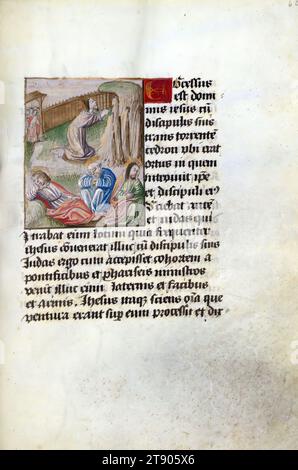 Egressus
est domi
nus iesus cū
discipulis suis
trans torrentē
cedron vbi erat
ortus in quem
introiuit ipse
et discipuli eiꝰ
Sciebat autē
et iudas qui
trabat eum locum quia frequenter
ihesus conuenerat illuc cū discipulis suis
Judas ergo cum accepisset cohortem a
pontificibus et phariseis ministros
venit illuc cum laternis et facibus
et armis. Ihesus itaqꝫ sciens oīa que
ventura erant sup eum processit et dix
alamy
Image ID: 2T905X6
www.alamy.com